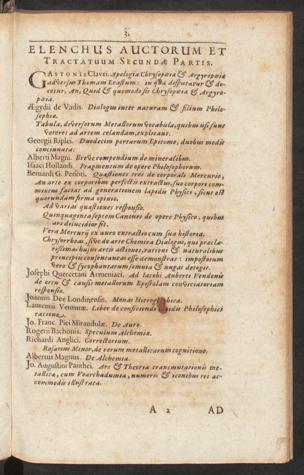 3.
ELENCHUS AUCTORUM ET
TRACTATUUM SECUNDÆ PARTIS.
GASTONIS Clavei. Apologia Chrysopœiæ & Argyropœiæ
adversus Thomam Erastum: in qua disputatur & do-
cetur, An, Quod & quomodo sit Chrysopœia & Argyro-
pœia.
Ægydii de Vadis. Dialogus inter naturam & filium Philo-
sophiæ.
Tabula, diversorum Metallorum vocabula, quibus usi sunt
veteres ad artem celandam, explicans.
Georgii Riplei. Duodecim portarum Epitome, duobus modis
concinnata.
Alberti Magni. Breve compendium de mineralibus.
Isaci Hollandi. Fragmentum de opere Philosophorum.
Bernardi G. Penoti. Quæstiones tres de corporali Mercurio,
An arte ex corporibus perfectis extractus, suo corpore com-
mixtus faciat ad generationem lapidis Physici, sicut est
quorundam firma opinio.
Ad varias quæstiones responsio.
Quinquaginta septem Canones de opere Physico, quibus
ars dilucidior fit.
Vera Mercurij ex auro extractio cum sua historia.
Chrysorrhoas, sive de arte Chemica Dialogus,
Josephi Quercetani Armeniaci. Ad Jacobi Auberti Vendonis
de ortu & causis metallorum Epistolam
responsio.
Joannis Dee Londinensis. Monas Hieroglyphica.
Laurentii Venturæ. Liber de conficiendi lapidis Philosophici
ratione.
Jo. Franc. Pici Mirandulæ. De Auro.
Rogerii Bachonis. Speculum Alchemiæ.
Richardi Anglici. Correctorium.
Rosarius Minor, de rerum metallicarum cognitione.
Albertus Magnus. De Alchemia.
Jo. Augustini Panthei. Ars & Theoria transmutationis me-
tallicæ, cum Voarchadumia, numeris & iconibus rei ac-
commodis illustrata.
A 2 AD